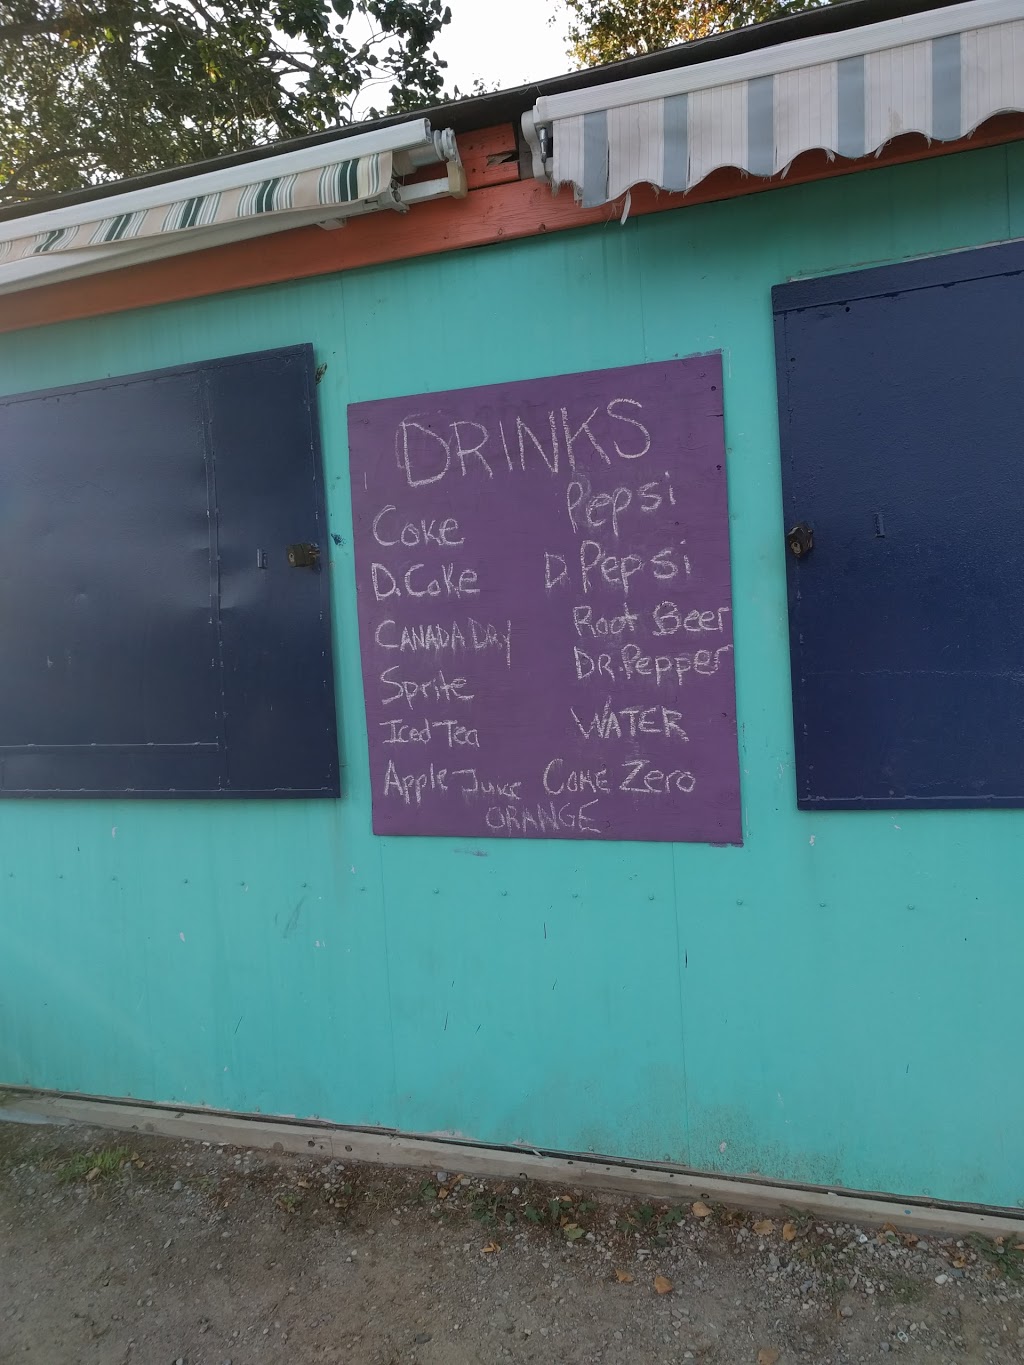 DRINKS
Coke
D. Coke
CANADA DRY
Sprite
Iced Tea
Apple Juice
Pepsi
D. Pepsi
Root Beer
DR. Pepper
WATER
COKE Zero
ORANGE